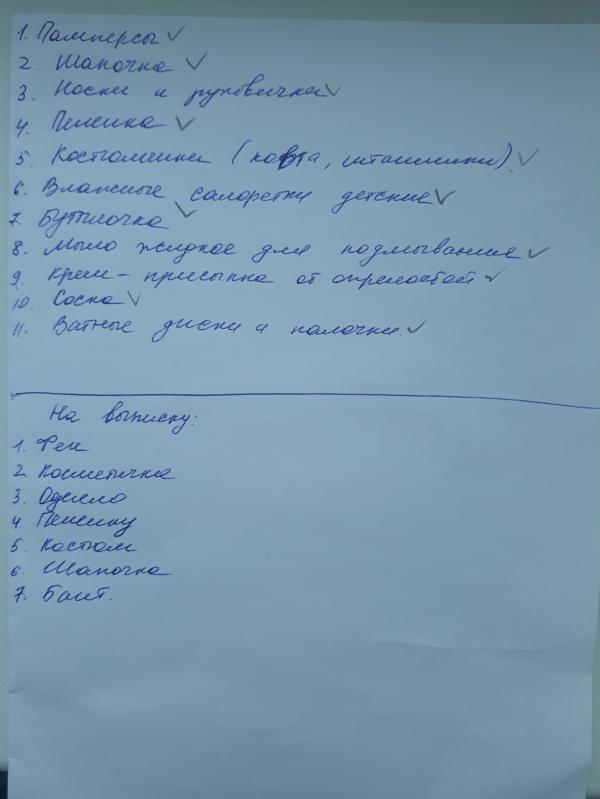 1. Памперсы ✓
2. Шапочка ✓
3. Носки и рукавички ✓
4. Пеленка ✓
5. Костюмчики (кофта, штанишки). ✓
6. Влажные салфетки детские ✓
7. Бутылочка ✓
8. Мыло жидкое для подмывания ✓
9. Крем - присыпка от опрелостей ✓
10. Соска ✓
11. Ватные диски и палочки. ✓
На выписку:
1. Фен
2. Косметичка
3. Одеяло
4. Пеленку
5. Костюм
6. Шапочка
7. Бант.